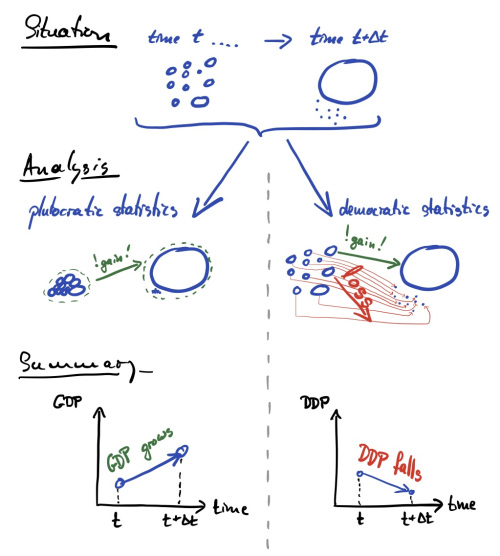 Situation
time t ..... → time t+Δt
Analysis
plutocratic statistics
democratic statistics
! gain !
! gain !
loss
Summary
GDP
GDP grows
t
t+Δt
time
DDP
DDP falls
t
t+Δt
time